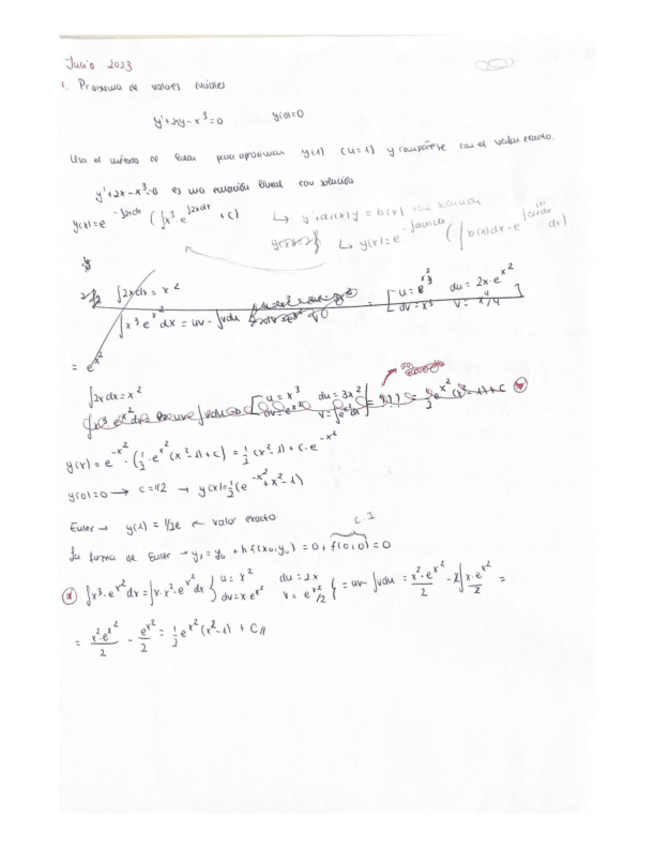 Julio 2023
1. Problema de valores iniciales
y'+2xy-x³=0 y(0)=0
Usa el método de Euler para aproximar y(1) (h=1) y compárese con el valor exacto.
y'+2x-x³=0 es una ecuación lineal con solución
y(x)=e^{-∫2xdx} (∫x³·e^{∫2xdx} + c) ↳ y'+a(x)y = b(x) con solución
↳ y(x)=e^{-∫a(x)dx} (∫b(x)dx·e^{∫a(x)dx} dx)
∫2xdx = x²
∫x³e^{x²}dx = uv-∫vdu = [u=e^{x²} du=2x·e^{x²}
dv=x³ v=x⁴/4]
= e^{x²}
∫2xdx=x²
[u=x³ du=3x²
dv=e^{x²} v=∫e^{x²}dx] = ½e^{x²}(x²-1)+c
y(x)=e^{-x²}·(½·e^{x²}(x²-1)+c) = ½(x²-1)+c·e^{-x²}
y(0)=0 → c=1/2 → y(x)=½(e^{-x²}+x²-1)
Euler → y(1)=1/2e ← valor exacto
La forma de Euler → y₁=y₀+hf(x₀,y₀)=0+f(0,0)=0 C.I
∫x³·e^{x²}dx=∫x·x²·e^{x²}dx {u=x² du=2x
dv=x·e^{x²} v=e^{x²}/2} = uv-∫vdu = x²·e^{x²}/2 - 2∫x·e^{x²}/2 =
= x²·e^{x²}/2 - e^{x²}/2 = ½e^{x²}(x²-1)+C//